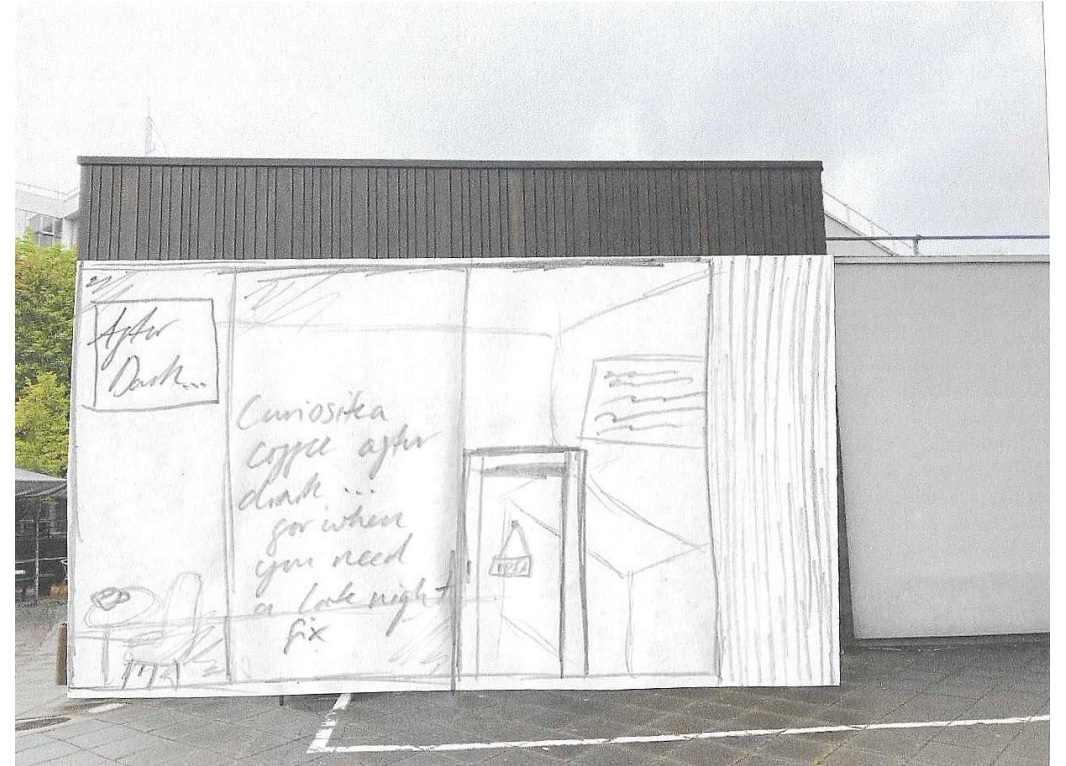 After
Dark...
Curiositea
coffee after
dark ...
for when
you need
a late night
fix
OPEN